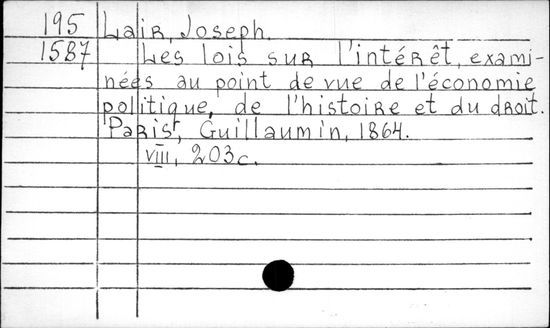 195 Lair, Joseph.
1587 Les lois sur l'intérêt, exami-
nées au point de vue de l'économie
politique, de l'histoire et du droit.
Paris, Guillaumin, 1864.
VIII, 203c.